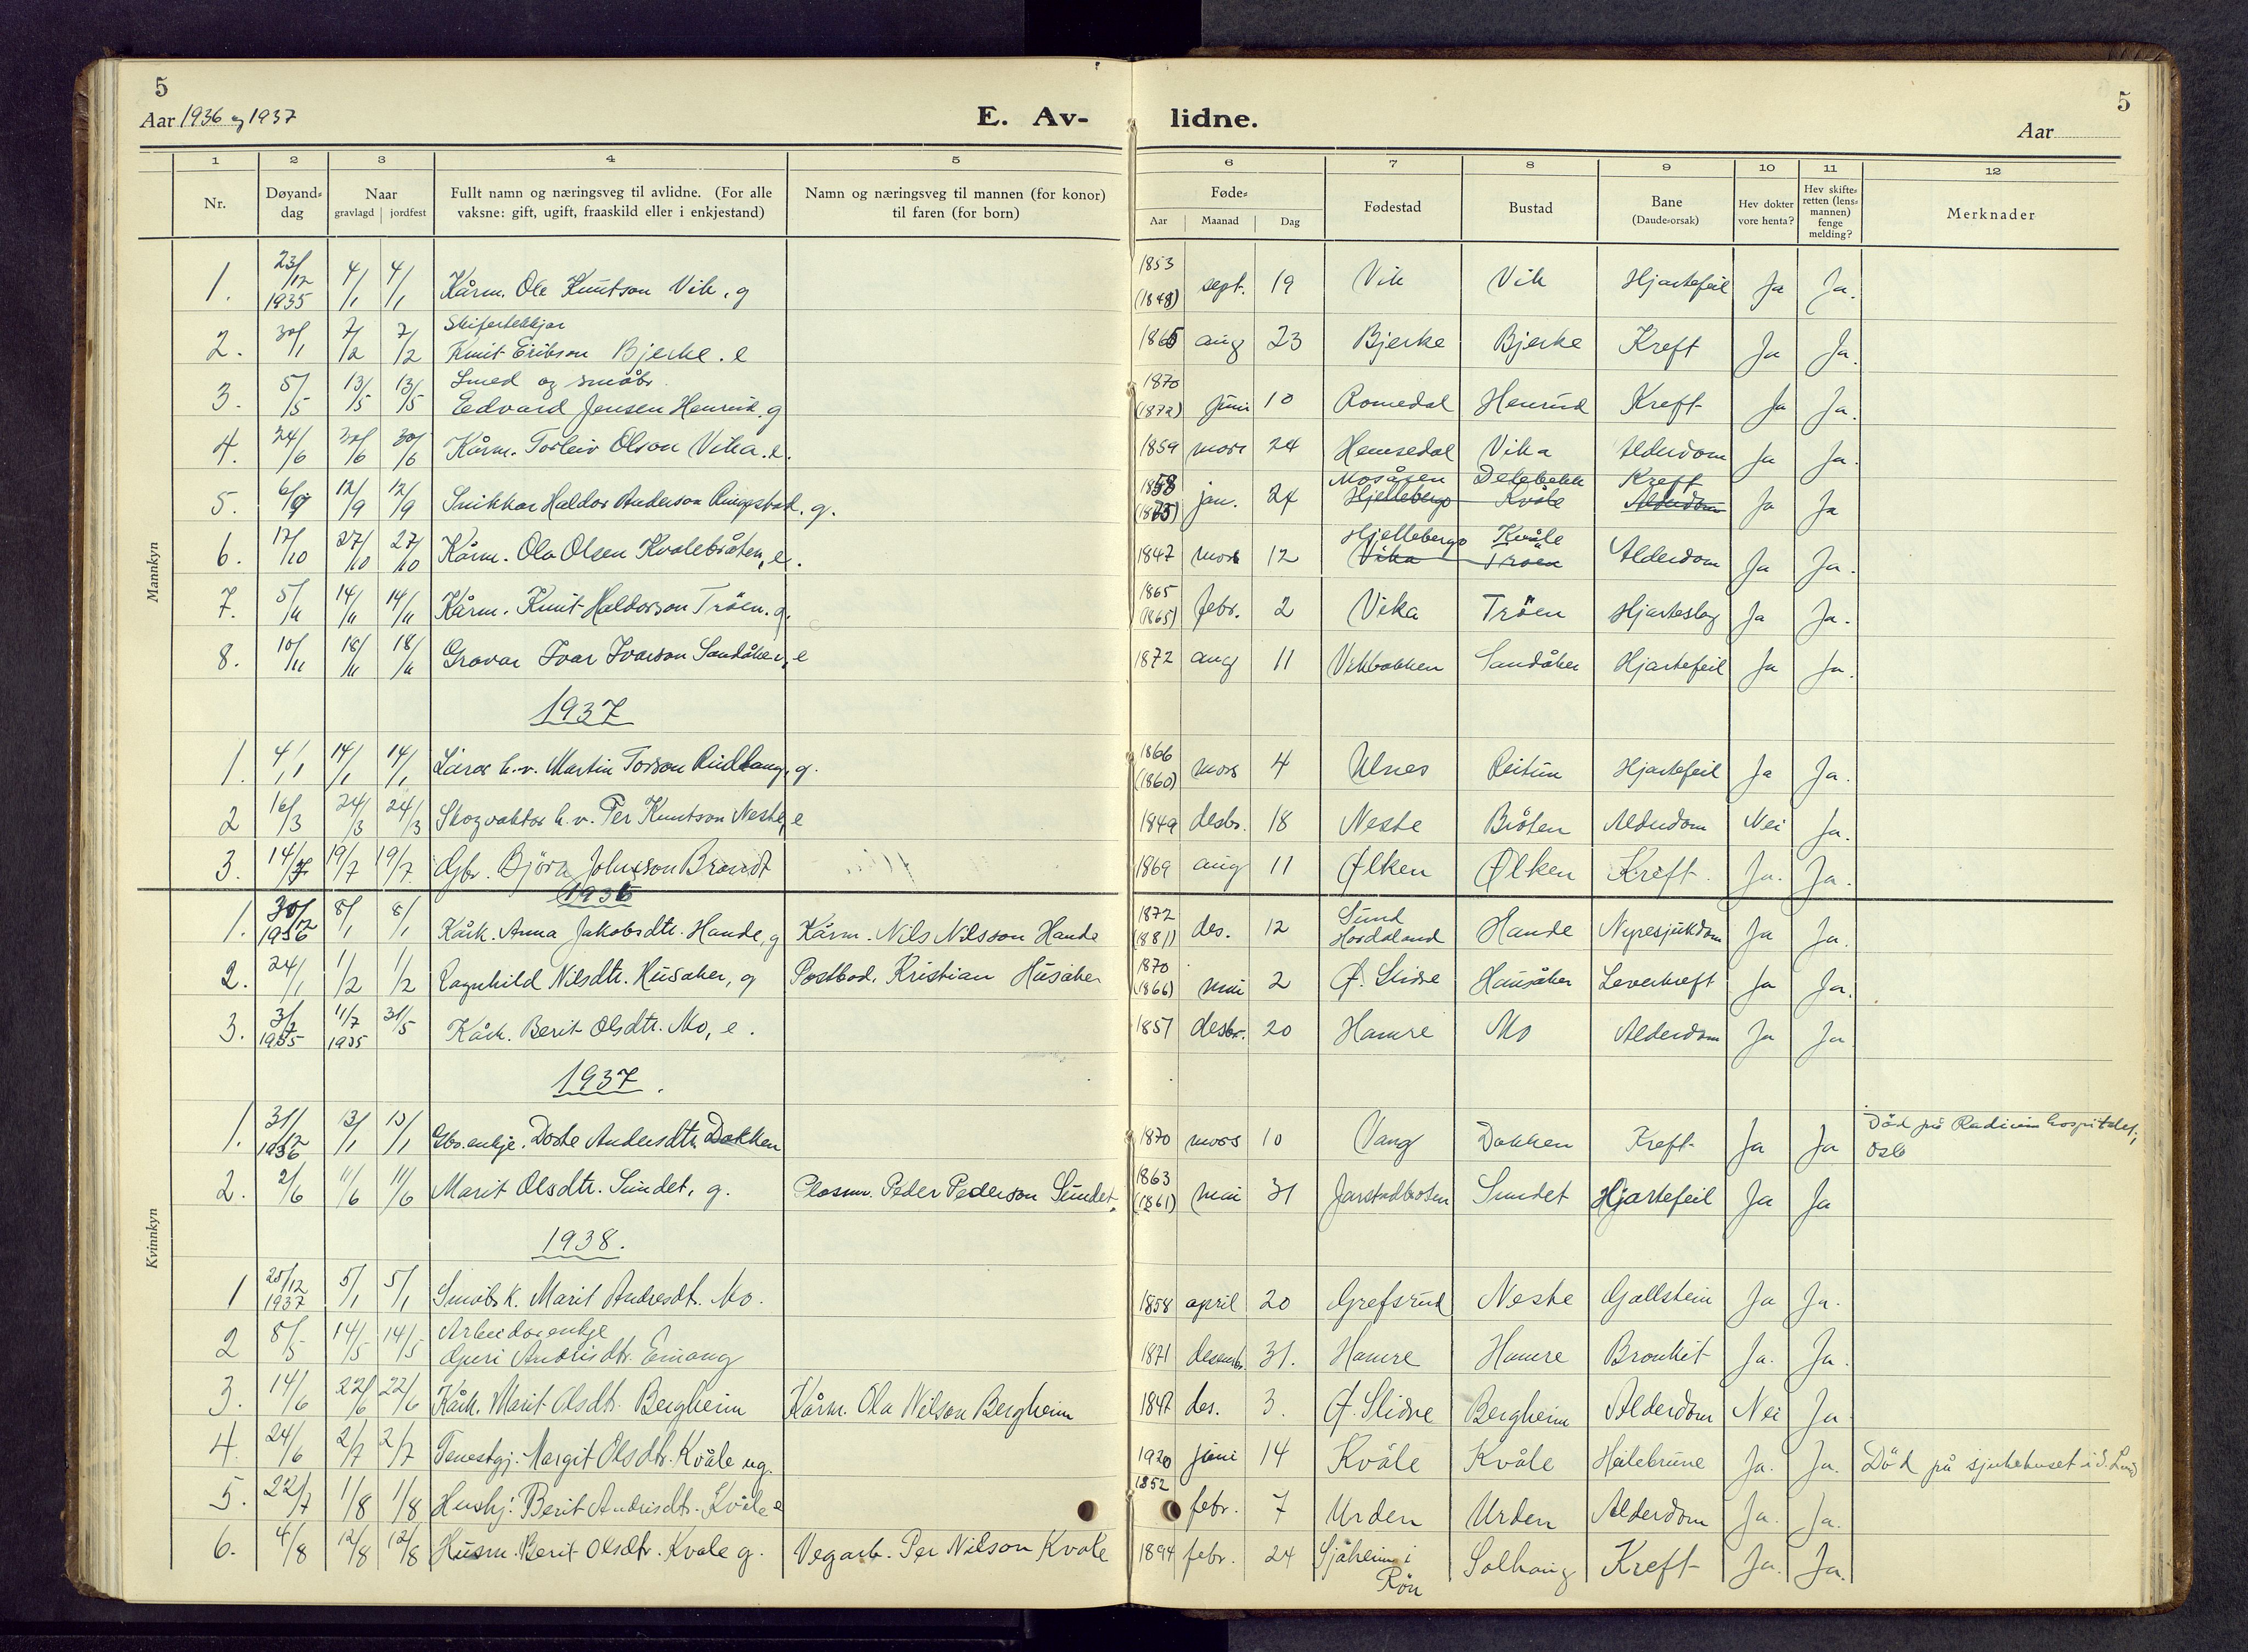 5
5
Aar 1936 og 1937
E. Av-lidne.
Aar
1 2 3 4 5 6 7 8 9 10 11 12
Nr. Døyand-dag Naar gravlagd jordfest Fullt namn og næringsveg til avlidne. (For alle vaksne: gift, ugift, fraaskild eller i enkjestand) Namn og næringsveg til mannen (for konor) til faren (for born)Føde- Aar Maanad Dag Fødestad Bustad Bane (Daude-orsak) Hev dokter vore henta? Hev skifte-retten (lens-mannen) fenge melding? Merknader
Mannkyn
1. 23/12 1935 4/1 4/1 Kårm. Ole Knutson Vik, g 1853 (1848) sept. 19 Vik Vik Hjartefeil Ja Ja.
2. 30/1 7/2 7/2 Skifertekkjar Knut Erikson Bjerke. e 1865 aug 23 Bjerke Bjerke Kreft Ja Ja.
3. 5/5 13/5 13/5 Smed og småbr. Edvard Jensen Henrud, g 1870 (1872) juni 10 Romedal Henrud Kreft Ja Ja.
4. 24/6 30/6 30/6 Kårm. Torleiv Olson Vika. e. 1859 mars 24 Hemsedal Vika Alderdom Ja Ja.
5. 6/9 12/9 12/9 Snikkar Haldor Anderson Ringestad. g. 1858 jan. 24 Mosåsen Hjelleberge Kvåle Kreft Alderdom Ja Ja
6. 17/10 27/10 27/10 Kårm. Ola Olsen Kvalebråten, e. 1847 mars 12 Hjelleberge Vika Kvåle Trøen Alderdom Ja Ja.
7. 5/11 14/11 14/11 Kårm. Knut Haldorson Trøen. g. 1865 (1865) febr. 2 Vika Tröen Hjarteslag Ja Ja.
8. 10/11 18/11 18/11 Gravar Ivar Ivarson Sandåker, e 1872 aug 11 Vikbakken Sandåker Hjartefeil Ja Ja.
1937
1. 4/1 14/1 14/1 Lärar h.v. Martin Torson Rudlang, g. 1866 (1860) mars 4 Ulnes Reitun Hjartefeil Ja Ja.
2 16/3 24/3 24/3 Skogvaktar h.v. Per Knutson Neste, e 1849 desbr. 18 Neste Bråten Alderdom Nei Ja.
3. 14/7 19/7 19/7. Gbr. Björn Johnson Brandt 1869 aug 11 Ølken Ølken Kreft. Ja. Ja.
Kvinnkyn
1936
1. 30/12 1936 8/1 8/1 Kårk. Anna Jakobsdtr. Hande, g Kårm. Nils Nilsson Hande 1872 (1881) des. 12 Sund Hordaland Hande Nyresjukdom Ja Ja.
2. 24/1 1/2 1/2 Ragnhild Nilsdtr. Husaker, g Postbod. Kristian Husaker 1870 (1866) mai 2 Ø. Slidre Husåker Leverkreft Ja Ja.
3. 3/7 1935 11/7 1935 31/5 Kårk. Berit Olsdtr. Mo, e. 1857 desbr. 20 Hamre Mo Alderdom Ja Ja
1937.
1. 31/12 1936 13/1 13/1 Gbr.enkje. Dorte Andersdtr. Dokken 1870 mars 10 Vang Dokken Kreft Ja Ja Död på Radiumhospitalet, Oslo
2. 2/6 11/6 11/6 Marit Olsdtr. Sundet, g. Plassm. Peder Pederson Sundet. 1863 (1861) mai 31 Jarstadbroten Sundet Hjartefeil Ja Ja
1938.
1 25/12 1937 5/1 5/1 Småbr.k. Marit Andresdt. Mo. 1858 april 20 Grefsrud Neste Gallstein Ja Ja.
2 8/5 14/5 14/5 Arbeidarenkje Guri Andrisdtr. Ermang 1871 desembr. 31. Hamre Hamre Bronkit Ja. Ja.
3. 14/6 22/6 22/6 Kårk. Marit Olsdtr. Bergheim Kårm. Ola Nilson Bergheim 1847 des. 3. Ø. Slidre Bergheim Alderdom Nei Ja
4. 24/6 2/7 2/7 Tenestgj. Margit Olsdtr. Kvåle ug. 1920 juni 14 Kvåle Kvåle Ja. Ja. Död på sjukehuset i S. Land
5. 22/7 1/8 1/8 Hushj. Berit Andrisdtr. Kvåle e 1852 febr. 7 Urden Urden Alderdom Ja. Ja.
6. 4/8 12/8 12/8 Husm. Berit Olsdtr. Kvale g. Vegarb. Per Nilson Kvale 1894 febr. 24 Sjåheim i Røn Solhaug Kreft Ja. Ja.